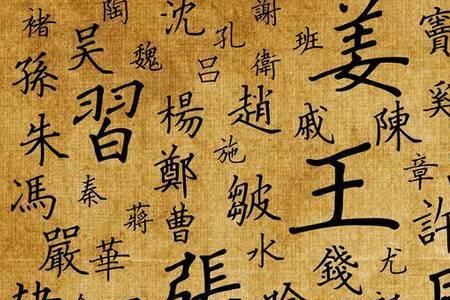 褚 陶 沈 謝 班 姜 竇
吳 魏 孔 呂 衛
孫 習 楊 趙 戚 陳 奚
朱 鄭 施 章
馮 秦 皺 王 許
蔣 曹 水 錢 尤
嚴 華 張